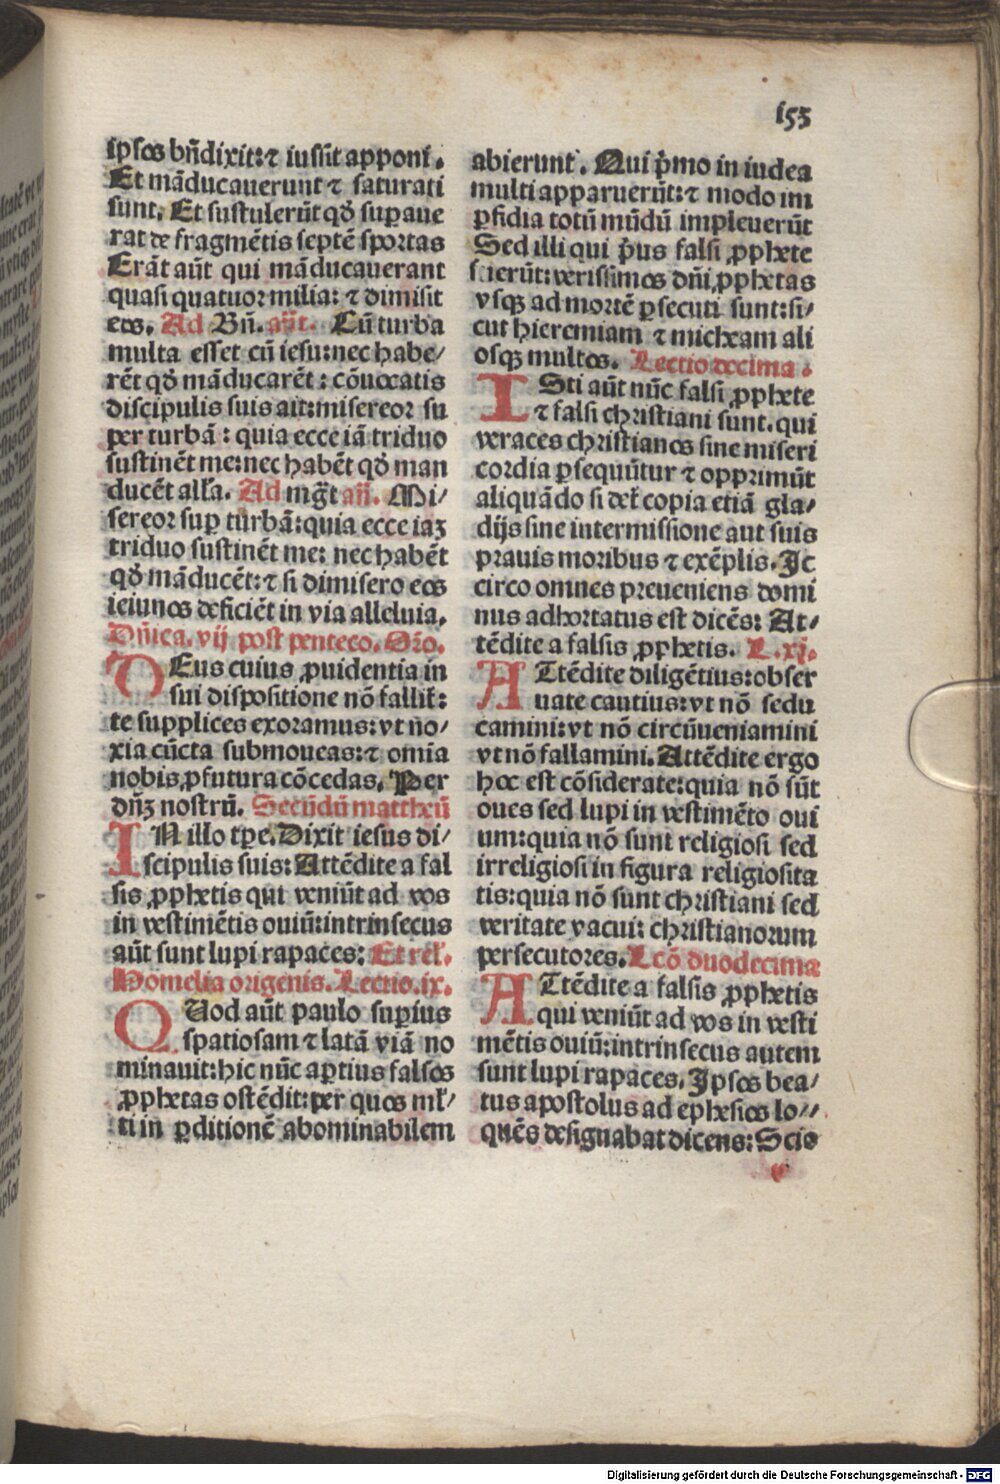 153
ipsos bn̄dixit: ⁊ iussit apponi.
Et māducauerunt ⁊ saturati
sunt. Et sustulerūt qd̓ suꝑaue
rat de fragmētis septē sportas
Erāt aūt qui māducauerant
quasi quatuor milia: ⁊ dimisit
eos. Ad Bn̄. an̄t. Cū turba
multa esset cū iesu: nec habe/
rēt qd̓ māducarēt: cōuocatis
discipulis suis ait: misereor su
per turbā: quia ecce iā triduo
sustinēt me: nec habēt qd̓ man
ducēt all̓a. Ad mg̃t an̄. Mi/
sereor suꝑ turbā: quia ecce iaꝫ
triduo sustinēt me: nec habēt
qd̓ māducēt: ⁊ si dimisero eos
ieiunos deficiēt in via alleluia.
Dn̄ica. vij post penteco. Or̄o.
DEus cuius ꝓuidentia in
sui dispositione nō fallit̉:
te supplices exoramus: vt no/
xia cūcta submoueas: ⁊ omīa
nobis ꝓfutura cōcedas. Per
dn̄ꝫ nostrū. Secūdū mattheū
IN illo tꝑe. Dixit iesus di/
scipulis suis: Attēdite a fal
sis ꝓphetis qui veniūt ad vos
in vestimētis ouiū: intrinsecus
aūt sunt lupi rapaces: Et rel̓.
Homelia origenis. Lectio. ix.
QUod aūt paulo suꝑius
spatiosam ⁊ latā viā no
minauit: hic nūc aꝑtius falsos
ꝓphetas ostēdit: per quos ml̓/
ti in ꝑditionē abominabilem
abierunt. Qui p̓mo in iudea
multi apparuerūt: ⁊ modo im
ꝑfidia totū mūdū impleuerūt
Sed illi qui p̓us falsi ꝓphete
fuerūt: verissimos dn̄i ꝓphetas
vsqꝫ ad mortē ꝑsecuti sunt: si/
cut hieremiam ⁊ micheam ali
osqꝫ multos. Lectio decima.
ISti aūt nūc falsi ꝓphete
⁊ falsi christiani sunt. qui
veraces christianos sine miseri
cordia ꝑsequūtur ⁊ opprimūt
aliquādo si det̉ copia etiā gla/
dijs sine intermissione aut suis
prauis moribus ⁊ exēplis. Jc
circo omnes preueniens domi
nus adhortatus est dicēs: At/
tēdite a falsis ꝓphetis. L. xj.
ATtēdite diligētius: obser
uate cautius: vt nō sedu
camini: vt nō circūueniamini
vt nō fallamini. Attēdite ergo
hoc est cōsiderate: quia nō sūt
oues sed lupi in vestimēto oui
um: quia nō sunt religiosi sed
irreligiosi in figura religiosita
tis: quia nō sunt christiani sed
veritate vacui: christianorum
persecutores. Lcō duodecima
ATtēdite a falsis ꝓphetis
qui veniūt ad vos in vesti
mētis ouiū: intrinsecus autem
sunt lupi rapaces. Jpsos bea/
tus apostolus ad ephesios lo/
quēs designabat dicens: Scio
v
Digitalisierung gefördert durch die Deutsche Forschungsgemeinschaft - DFG